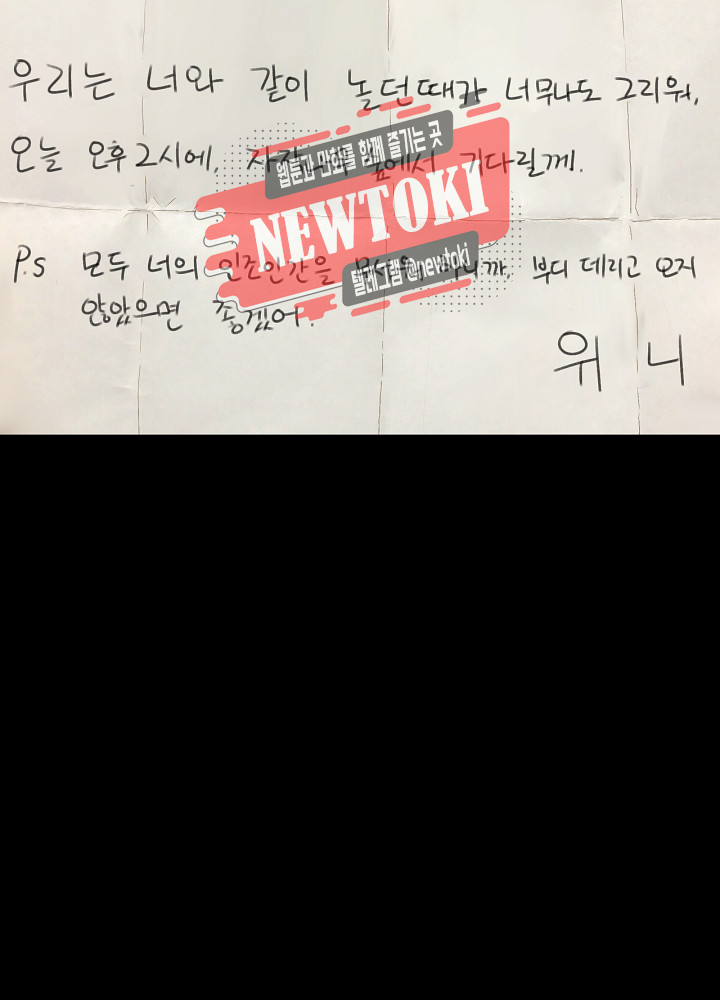 우리는 너와 같이 놀던때가 너무나도 그리워,
오늘 오후 2시에, 앞에서 기다릴께.
웹툰과 만화를 함께 즐기는 곳
NEWTOKI
텔레그램 @newtoki
P.s 모두 너의 인조인간을 부디 데리고 오지
않았으면 좋겠어.
위니